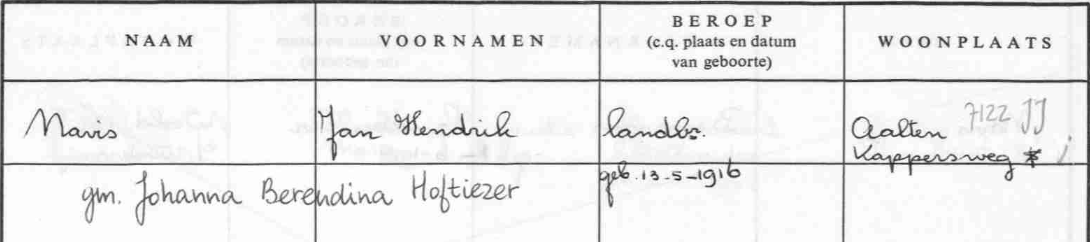 NAAM VOORNAMEN BEROEP (c.q. plaats en datum van geboorte) WOONPLAATS
Mavis Jan Hendrik landbr. Aalten 7122 JJ
Kappersweg *
gm. Johanna Berendina Hoftiezer geb. 13-5-1916